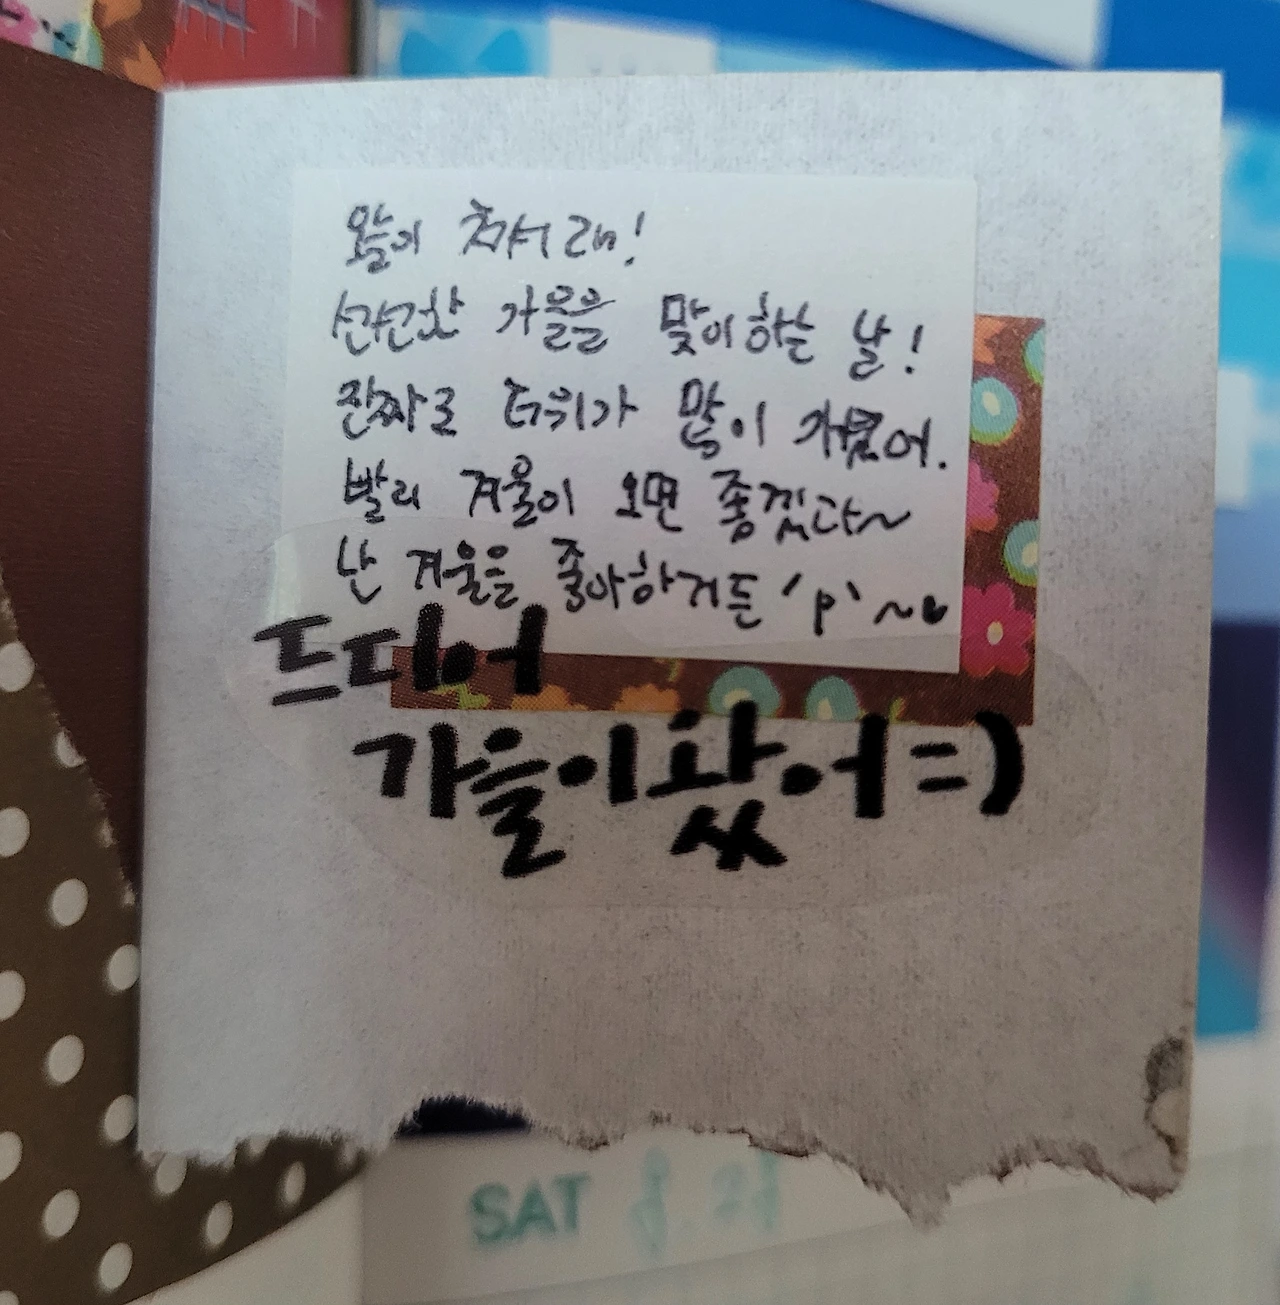 오늘이 처서래!
선선한 가을을 맞이하는 날!
진짜로 더위가 많이 가셨어.
빨리 겨울이 오면 좋겠다~
난 겨울을 좋아하거든 'p' ~♥
드디어
가을이왔어=)
SAT